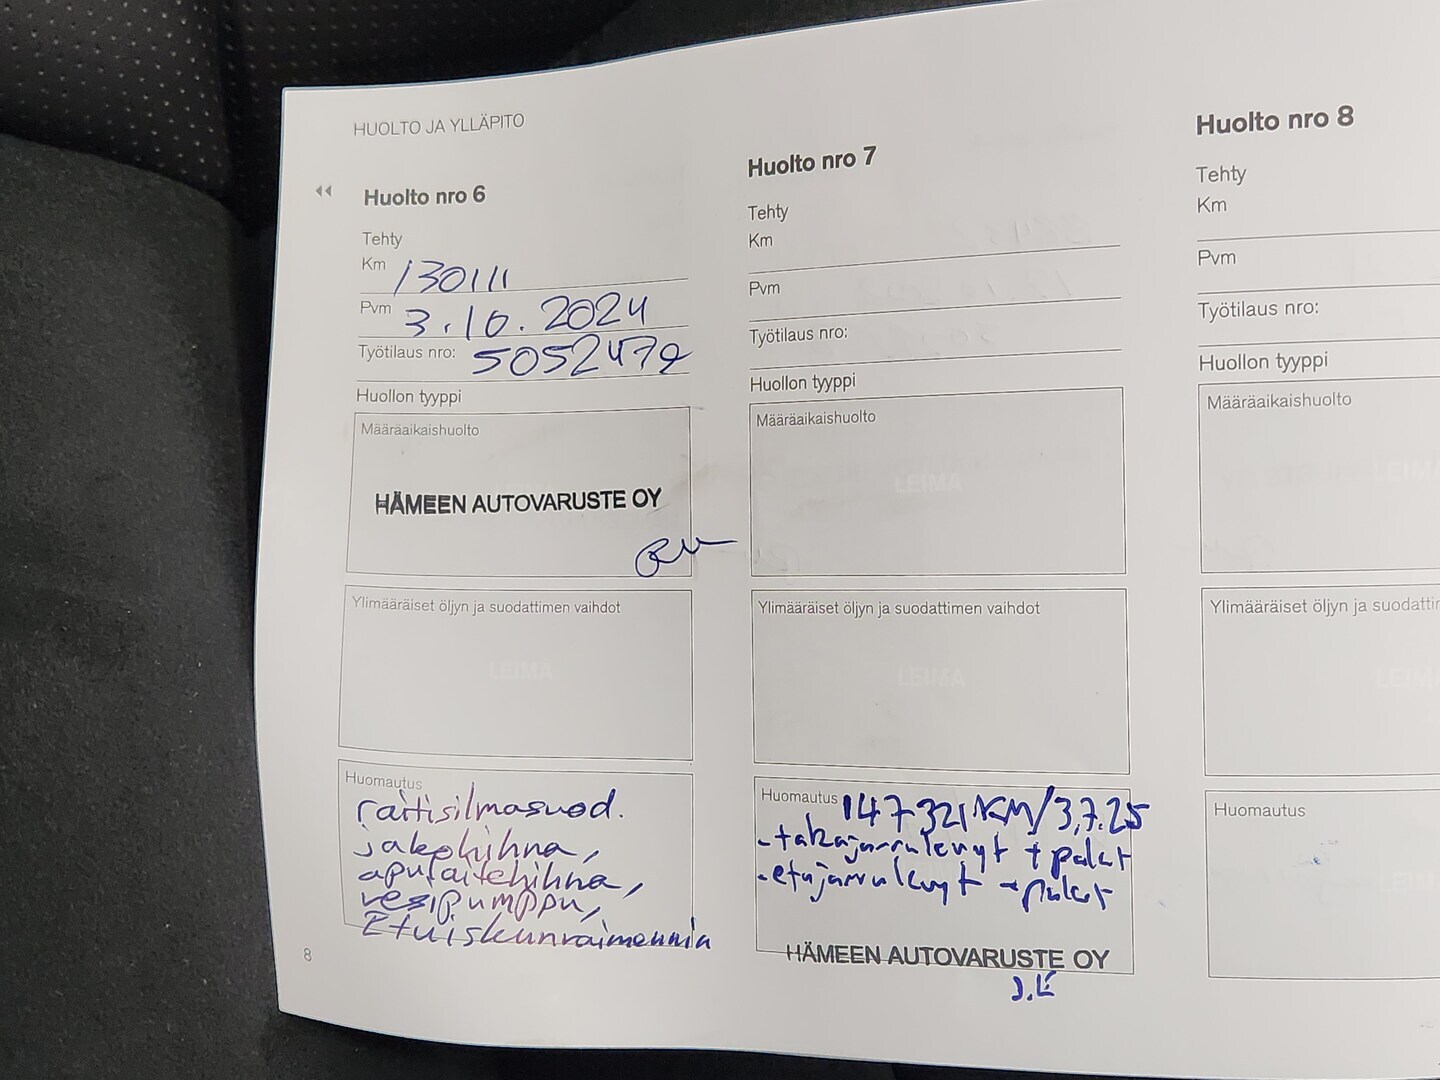 HUOLTO JA YLLÄPITO
Huolto nro 6
Tehty
Km 130111
Pvm 3.10.2024
Työtilaus nro: 5052479
Huollon tyyppi
Määräaikaishuolto
HÄMEEN AUTOVARUSTE OY
Ylimääräiset öljyn ja suodattimen vaihdot
LEIMA
Huomautus
raitisilmasuod.
jakohihna,
apulaitehihna,
vesipumppu,
Etuiskunvaimennin
8
Huolto nro 7
Tehty
Km
Pvm
Työtilaus nro:
Huollon tyyppi
Määräaikaishuolto
LEIMA
Ylimääräiset öljyn ja suodattimen vaihdot
LEIMA
Huomautus 147321KM/3.7.25
-takajarrulevyt + palat
-etujarrulevyt + palat
HÄMEEN AUTOVARUSTE OY
J.E
Huolto nro 8
Tehty
Km
Pvm
Työtilaus nro:
Huollon tyyppi
Määräaikaishuolto
LEIMA
Ylimääräiset öljyn ja suodattim
LEIMA
Huomautus